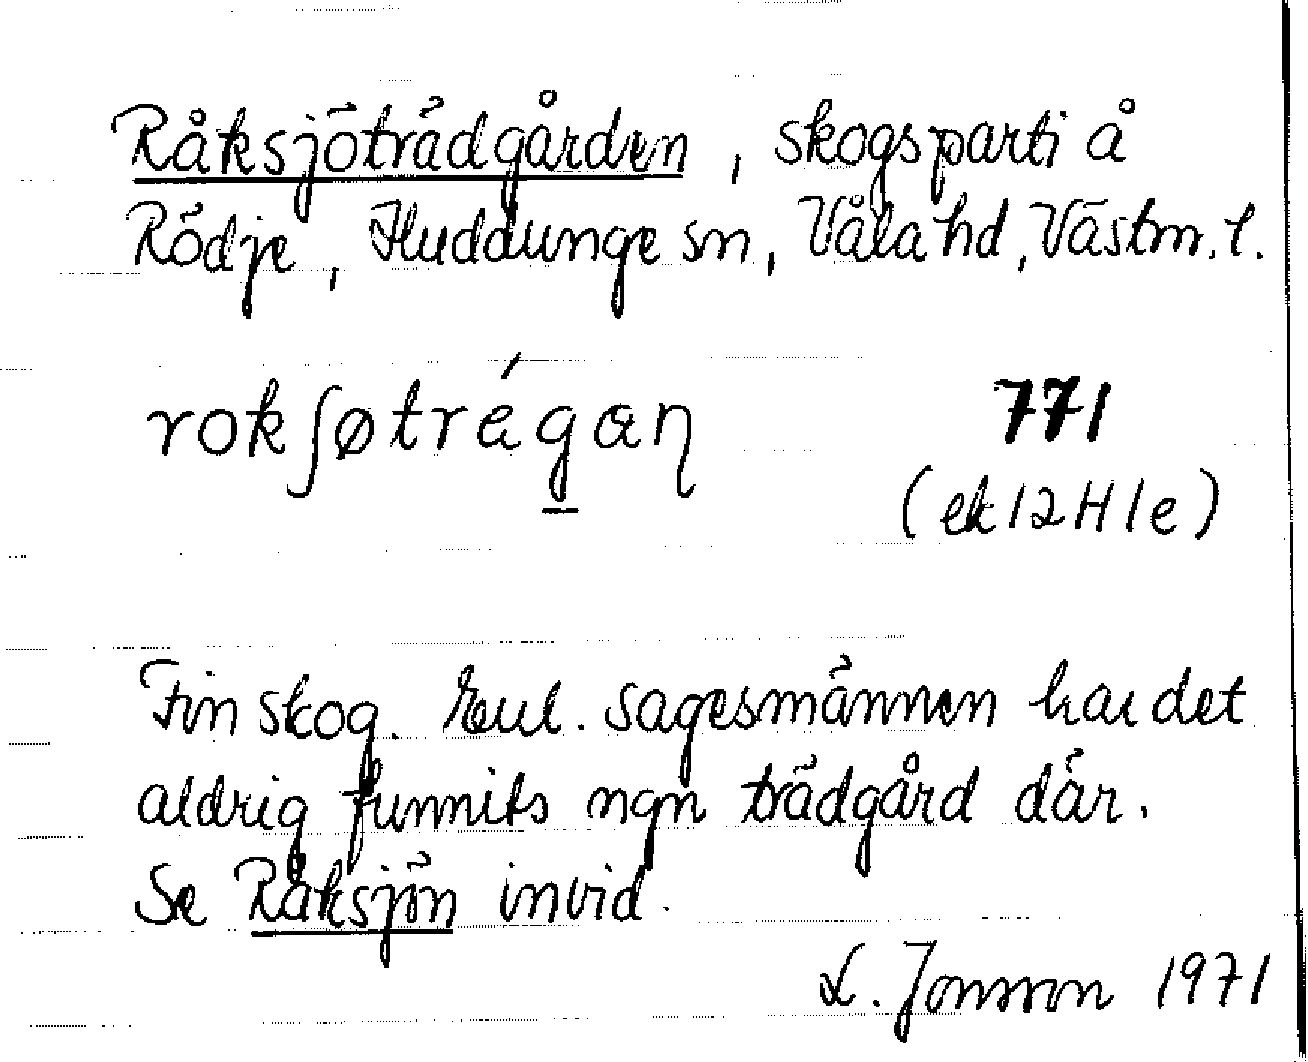 Råksjöträdgården, skogsparti å
Rödje, Huddunge sn, Våla hd, Västm. l.
rokʃøtrégan̠ 771
(ek 12 H 1e)
Fin skog. Enl. sagesmännen har det
aldrig funnits ngn trädgård där.
Se Råksjön invid.
L. Jonsson 1971